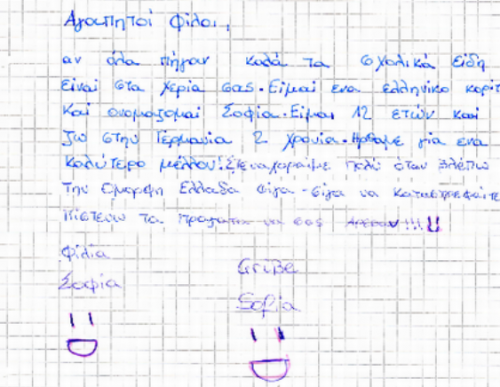 Αγαπητοί φίλοι,
αν όλα πήγαν καλά τα σχολικά είδη
είναι στα χερια σας. Ειμαι ενα ελληνικο κοριτ
και ονομαζομαι Σοφία. Ειμαι 12 ετών και
ζω στην Γερμανια 2 χρονια. Ηρθαμε για ενα
καλύτερο μέλλον! Στεναχοραμε πολυ όταν βλεπω
την ομορφη Ελλαδα σιγα-σιγα να καταστρεφαιτε
Πιστευω τα πραγματα να σας αρεσουν!!!
Φιλία
Σοφία
Grüße
Sofia